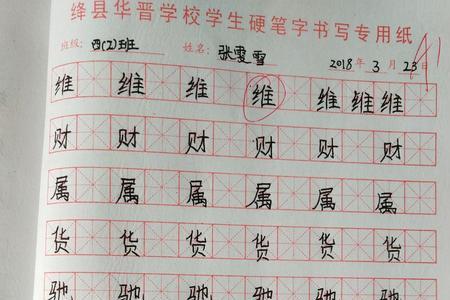 绛县华晋学校学生硬笔字书写专用纸
班级: 四(2)班 姓名: 张雯雪 2018年3月23日
维 维 维 维 维 维 维
财 财 财 财 财 财
属 属 属 属 属 属
货 货 货 货 货 货
驰 驰 驰 驰 驰 驰